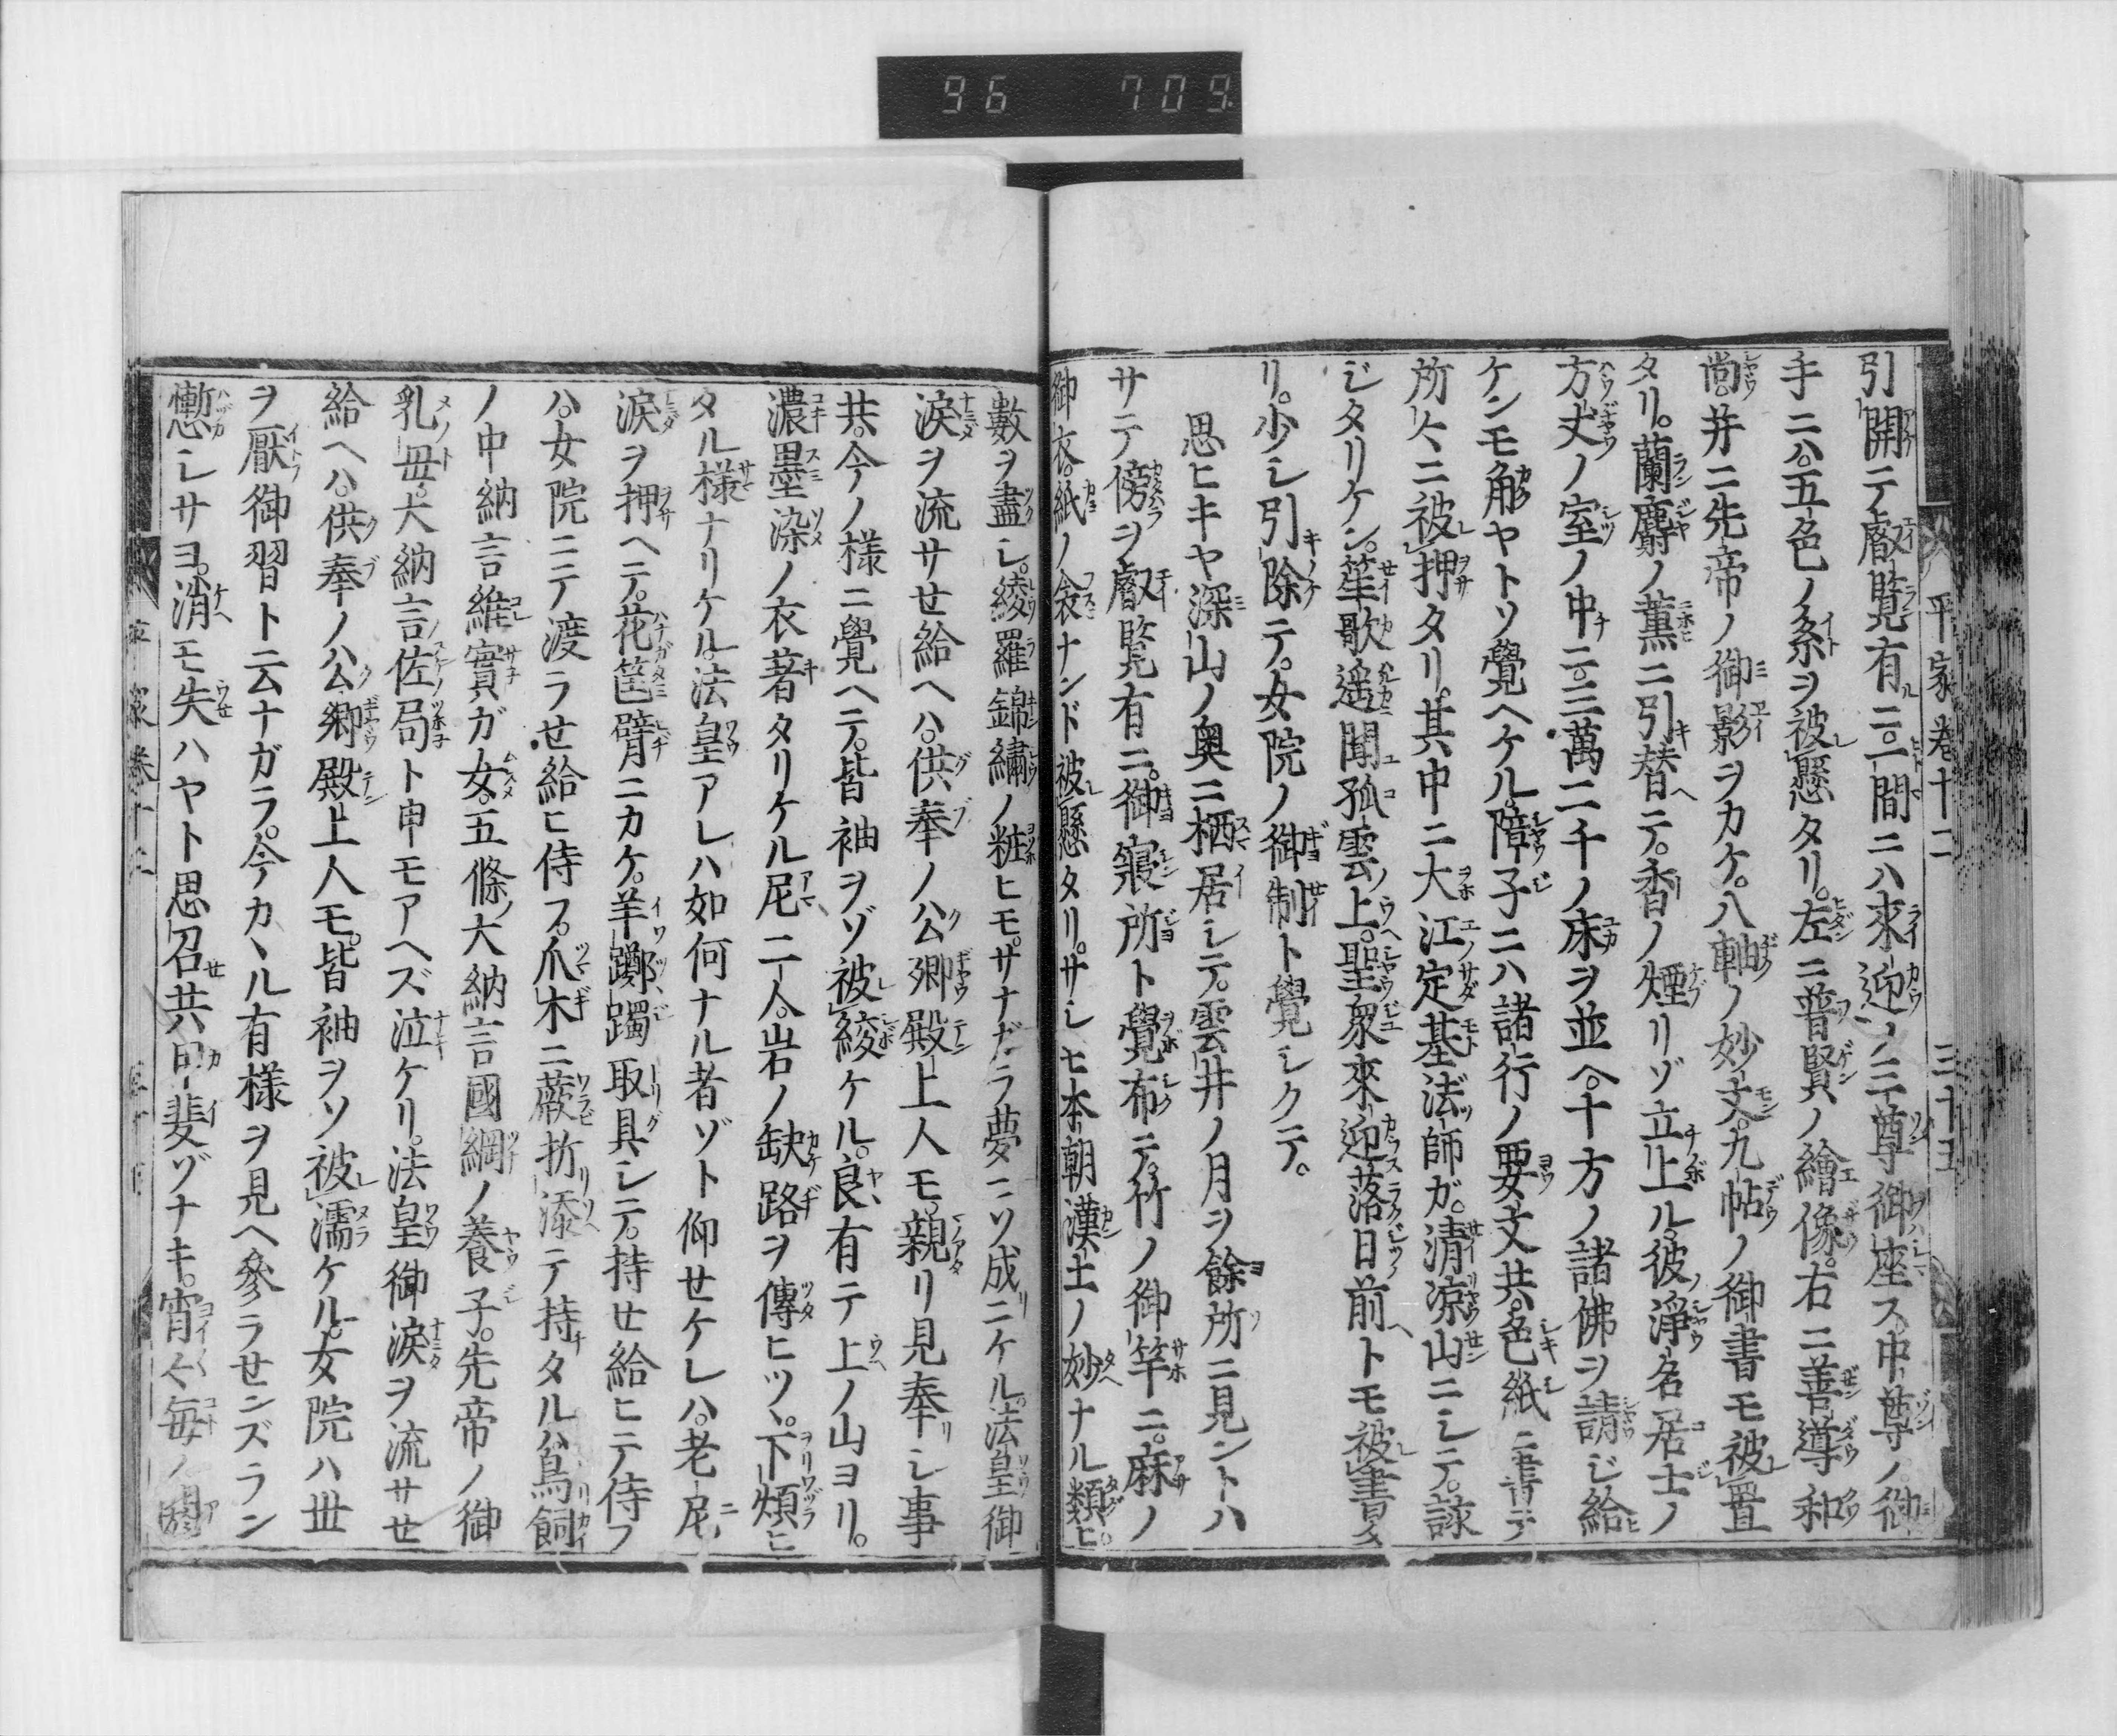 96 709
平家巻十二 三十五
引開テ叡覽有ニ。一間ニハ來迎ノ三尊御座ス中尊ノ御
手ニハ。五色ノ糸ヲ被懸タリ。左ニ普賢ノ繪像。右ニ善導和
尚。并ニ先帝ノ御影ヲカケ。八軸ノ妙文。九帖ノ御書モ被置
タリ。蘭麝ノ薫ニ引替テ。香ノ煙リゾ立上ル。彼淨名居士ノ
方丈ノ室ノ中ニ。三萬二千ノ床ヲ並ヘ。十方ノ諸佛ヲ請ジ給
ケンモ觧ヤトソ覺ヘケル。障子ニハ諸行ノ要文共。色紙ニ書テ
所々ニ被押タリ。其中ニ大江定基法師ガ。清凉山ニシテ。詠
ジタリケン。笙歌遥聞孤雲上。聖衆來迎落日前トモ被書タ
リ。少シ引除テ。女院ノ御制ト覺シクテ。
思ヒキヤ深山ノ奥ニ栖居シテ。雲井ノ月ヲ餘所ニ見ントハ
サテ傍ヲ叡覧有ニ。御寢所ト覺布テ。竹ノ御竿ニ。麻ノ
御衣。紙ノ衾ナンド被懸タリ。サシモ本朝漢土ノ妙ナル類ヒ
數ヲ盡シ。綾羅錦繍ノ粧ヒモ。サナガラ夢ニソ成ニケル。法皇御
涙ヲ流サせ給ヘハ。供奉ノ公卿殿上人モ。親リ見奉リシ事
共。今ノ様ニ覺ヘテ。皆袖ヲゾ被絞ケル。良有テ上ノ山ヨリ。
濃墨染ノ衣著タリケル尼二人。岩ノ缺路ヲ傳ヒツヽ。下煩ヒ
タル様ナリケル。法皇アレハ如何ナル者ゾト仰せケレハ。老尼
涙ヲ押ヘテ。花筐臂ニカケ。羊躑躅取具シテ。持せ給ヒテ侍フ
ハ。女院ニテ渡ラせ給ヒ侍フ。爪木ニ蕨折添テ持タルハ。鳥飼
ノ中納言維實ガ女。五條大納言國綱ノ養子。先帝ノ御
乳母。大納言佐局ト申モアヘズ泣ケリ。法皇御涙ヲ流サせ
給ヘハ。供奉ノ公卿殿上人モ。皆袖ヲソ被濡ケル。女院ハ世
ヲ厭御習ト云ナガラ。今カヽル有様ヲ見ヘ參ラせンズラン
慙シサヨ。消モ失ハヤト思召せ共甲斐ゾナキ。宵々毎ノ閼